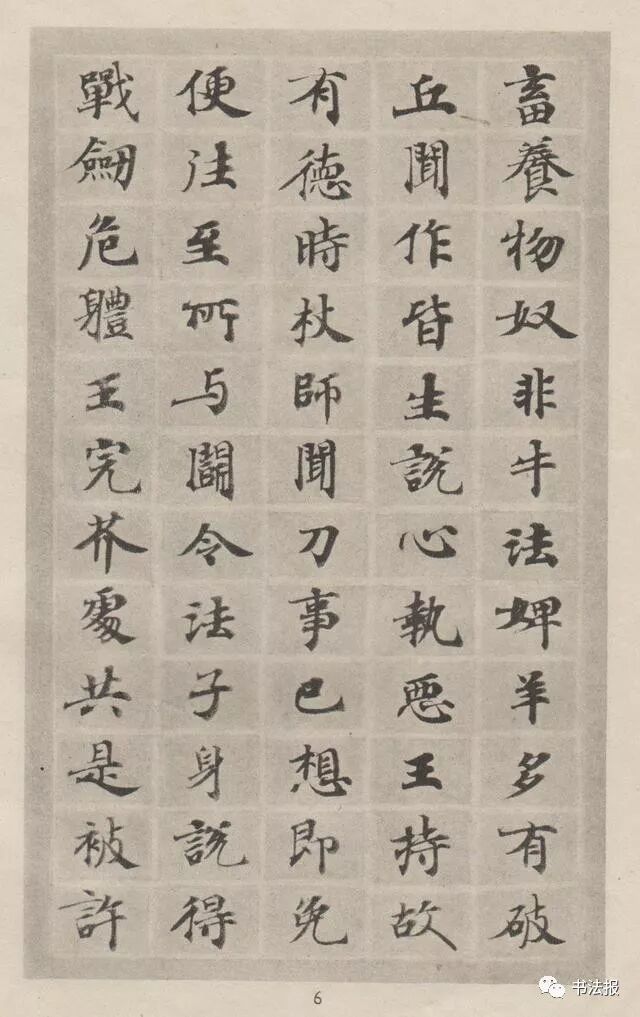 畜養物奴非牛法婢羊多有破
丘聞作皆生説心執惡王持故
有德時杖師聞刀事已想即免
便法至所与鬪令法子身説得
戰劒危體王完芥處共是被許
6
书法报